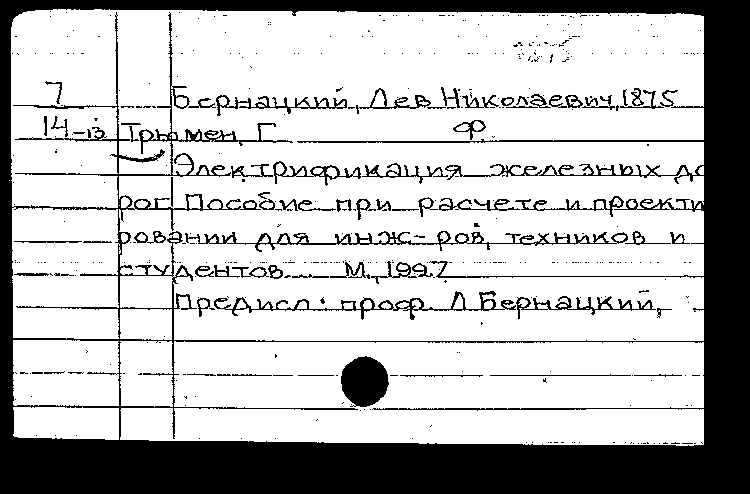 1875
7 Бернацкий, Лев Николаевич, 1875
14-13 Трюмен, Г. Ф
Электрификация железных до
рог. Пособие при расчете и проекти
ровании для инж-ров, техников и
студентов... М., 1997
Предисл: проф. Л. Бернацкий,